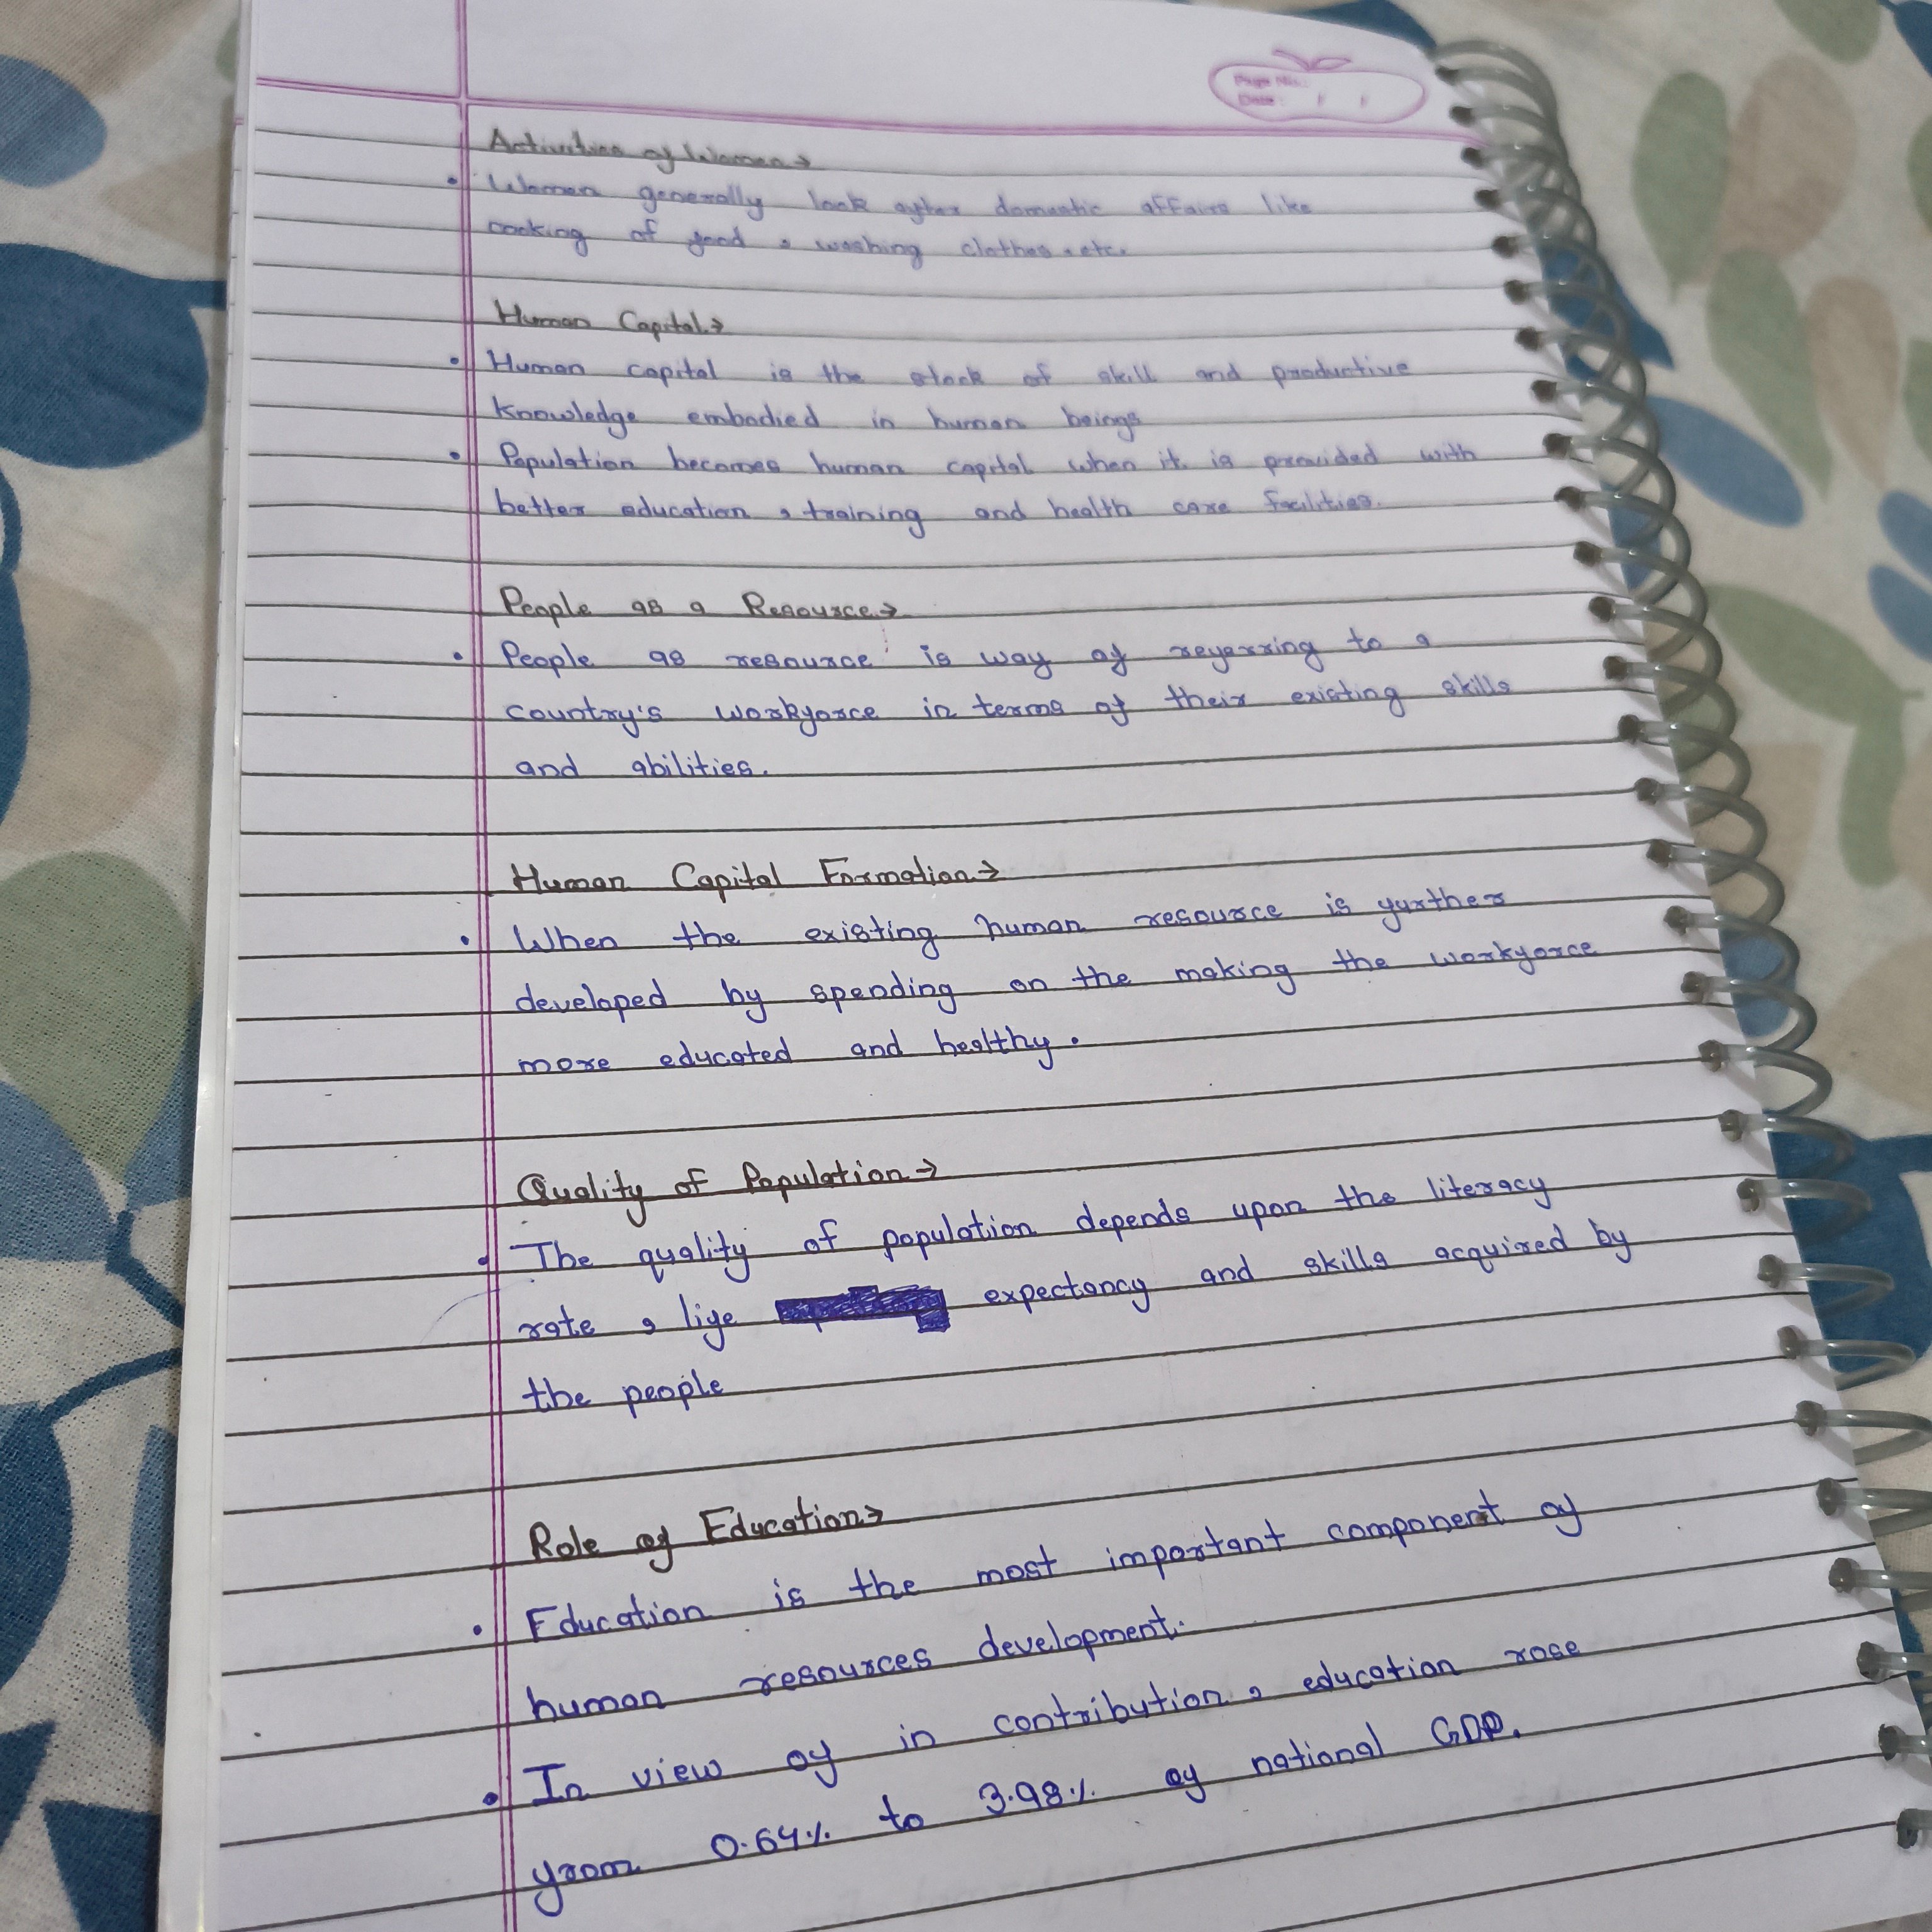 Page No.:
Date: / /
Activities of Women→
• Women generally look after domestic affairs like
cooking of food , washing clothes, etc.
Human Capital→
• Human capital is the stock of skill and productive
knowledge embodied in human beings
• Population becomes human capital when it is provided with
better education , training and health care facilities.
People as a Resource→
• People as resource is way of referring to a
country's workforce in terms of their existing skills
and abilities.
Human Capital Formation→
• When the existing human resource is further
developed by spending on the making the workforce
more educated and healthy.
Quality of Population→
• The quality of population depends upon the literacy
rate , life expectancy and skills acquired by
the people
Role of Education→
• Education is the most important component of
human resources development.
• In view of in contribution , education rose
from 0.64% to 3.98% of national GDP.